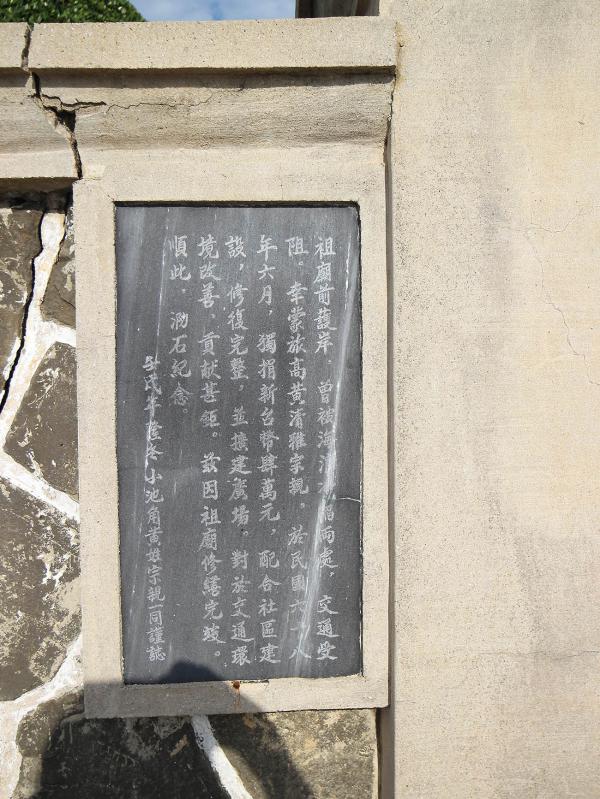 祖廟前護岸，曾被海 兩處，交通受
阻。幸蒙旅高黃清雅宗親，於民國六十八
年六月，獨捐新台幣肆萬元，配合社區建
設，修復完整，並擴建廣場。對於交通環
境改善，貢獻甚鉅。茲因祖廟修繕完竣。
順此，泐石紀念。
壬戌年隆冬小池角黃姓宗親一同謹誌